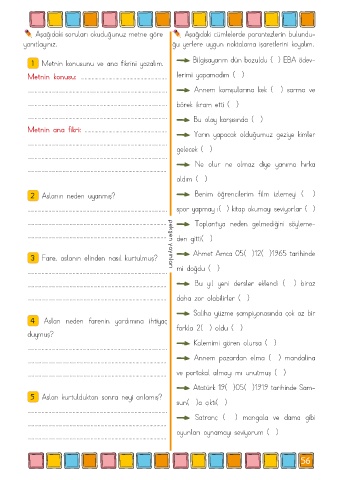 Aşağıdaki soruları okuduğunuz metne göre
yanıtlayınız.
1 Metnin konusunu ve ana fikrini yazalım.
Metnin konusu:
Metnin ana fikri:
2 Aslanın neden uyanmış?
3 Fare, aslanın elinden nasıl kurtulmuş?
4 Aslan neden farenin yardımına ihtiyaç
duymuş?
5 Aslan kurtulduktan sonra neyi anlamış?
Aşağıdaki cümlelerde parantezlerin bulundu-
ğu yerlere uygun noktalama işaretlerini koyalım.
Bilgisayarım dün bozuldu ( ) EBA ödev-
lerimi yapamadım ( )
Annem komşularına kek ( ) sarma ve
börek ikram etti ( )
Bu olay karşısında ( )
Yarın yapacak olduğumuz geziye kimler
gelecek ( )
Ne olur ne olmaz diye yanıma hırka
aldım ( )
Benim öğrencilerim film izlemey ( )
spor yapmay ( ) kitap okumayı seviyorlar ( )
Toplantıya neden gelmediğini söyleme-
den gitti( )
Ahmet Amca 05( )12( )1965 tarihinde
mi doğdu ( )
Bu yıl yeni dersler eklendi ( ) biraz
daha zor olabilirler ( )
Saliha yüzme şampiyonasında çok az bir
farkla 2( ) oldu ( )
Kalemimi gören olursa ( )
Annem pazardan elma ( ) mandalina
ve portakal almayı mı unutmuş ( )
Atatürk 19( )05( )1919 tarihinde Sam-
sun( )a çıktı( )
Satranç ( ) mangala ve dama gibi
oyunları oynamayı seviyorum ( )
56